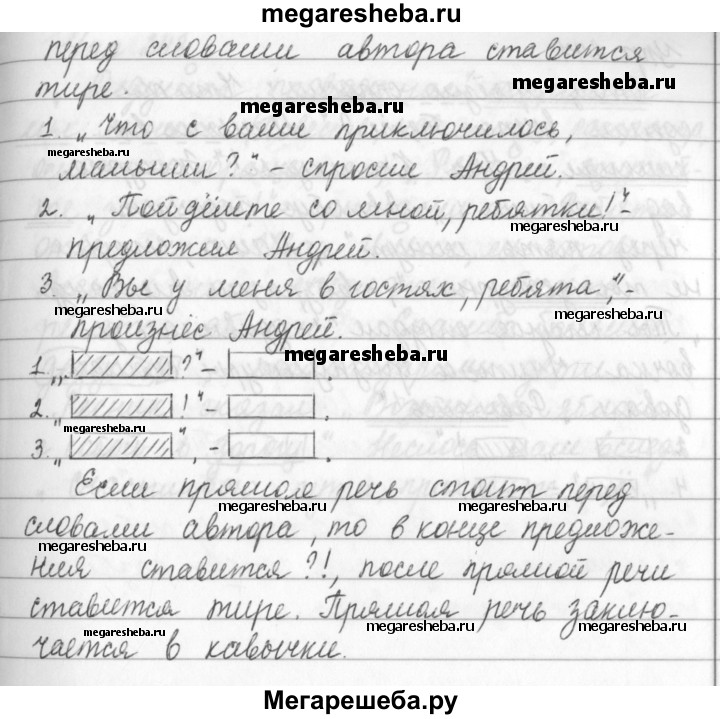 megaresheba.ru
перед словами автора ставится
тире.
megaresheba.ru
megaresheba.ru
1. „Что с вами приключилось,
megaresheba.ru
малыши?" – спросил Андрей.
2. „Пойдёмте со мной, ребятки!" –
megaresheba.ru
предложил Андрей.
3. „Вы у меня в гостях, ребята", –
megaresheba.ru
произнёс Андрей.
megaresheba.ru
1. „ ?" – .
2. „ !" – .
megaresheba.ru
3. „ ", – .
Если прямая речь стоит перед
megaresheba.ru megaresheba.ru
словами автора, то в конце предложе-
megaresheba.ru
ния ставится ?!, после прямой речи
megaresheba.ru
ставится тире. Прямая речь заклю-
megaresheba.ru megaresheba.ru megaresheba.ru
чается в кавычки.
Мегарешеба.ру